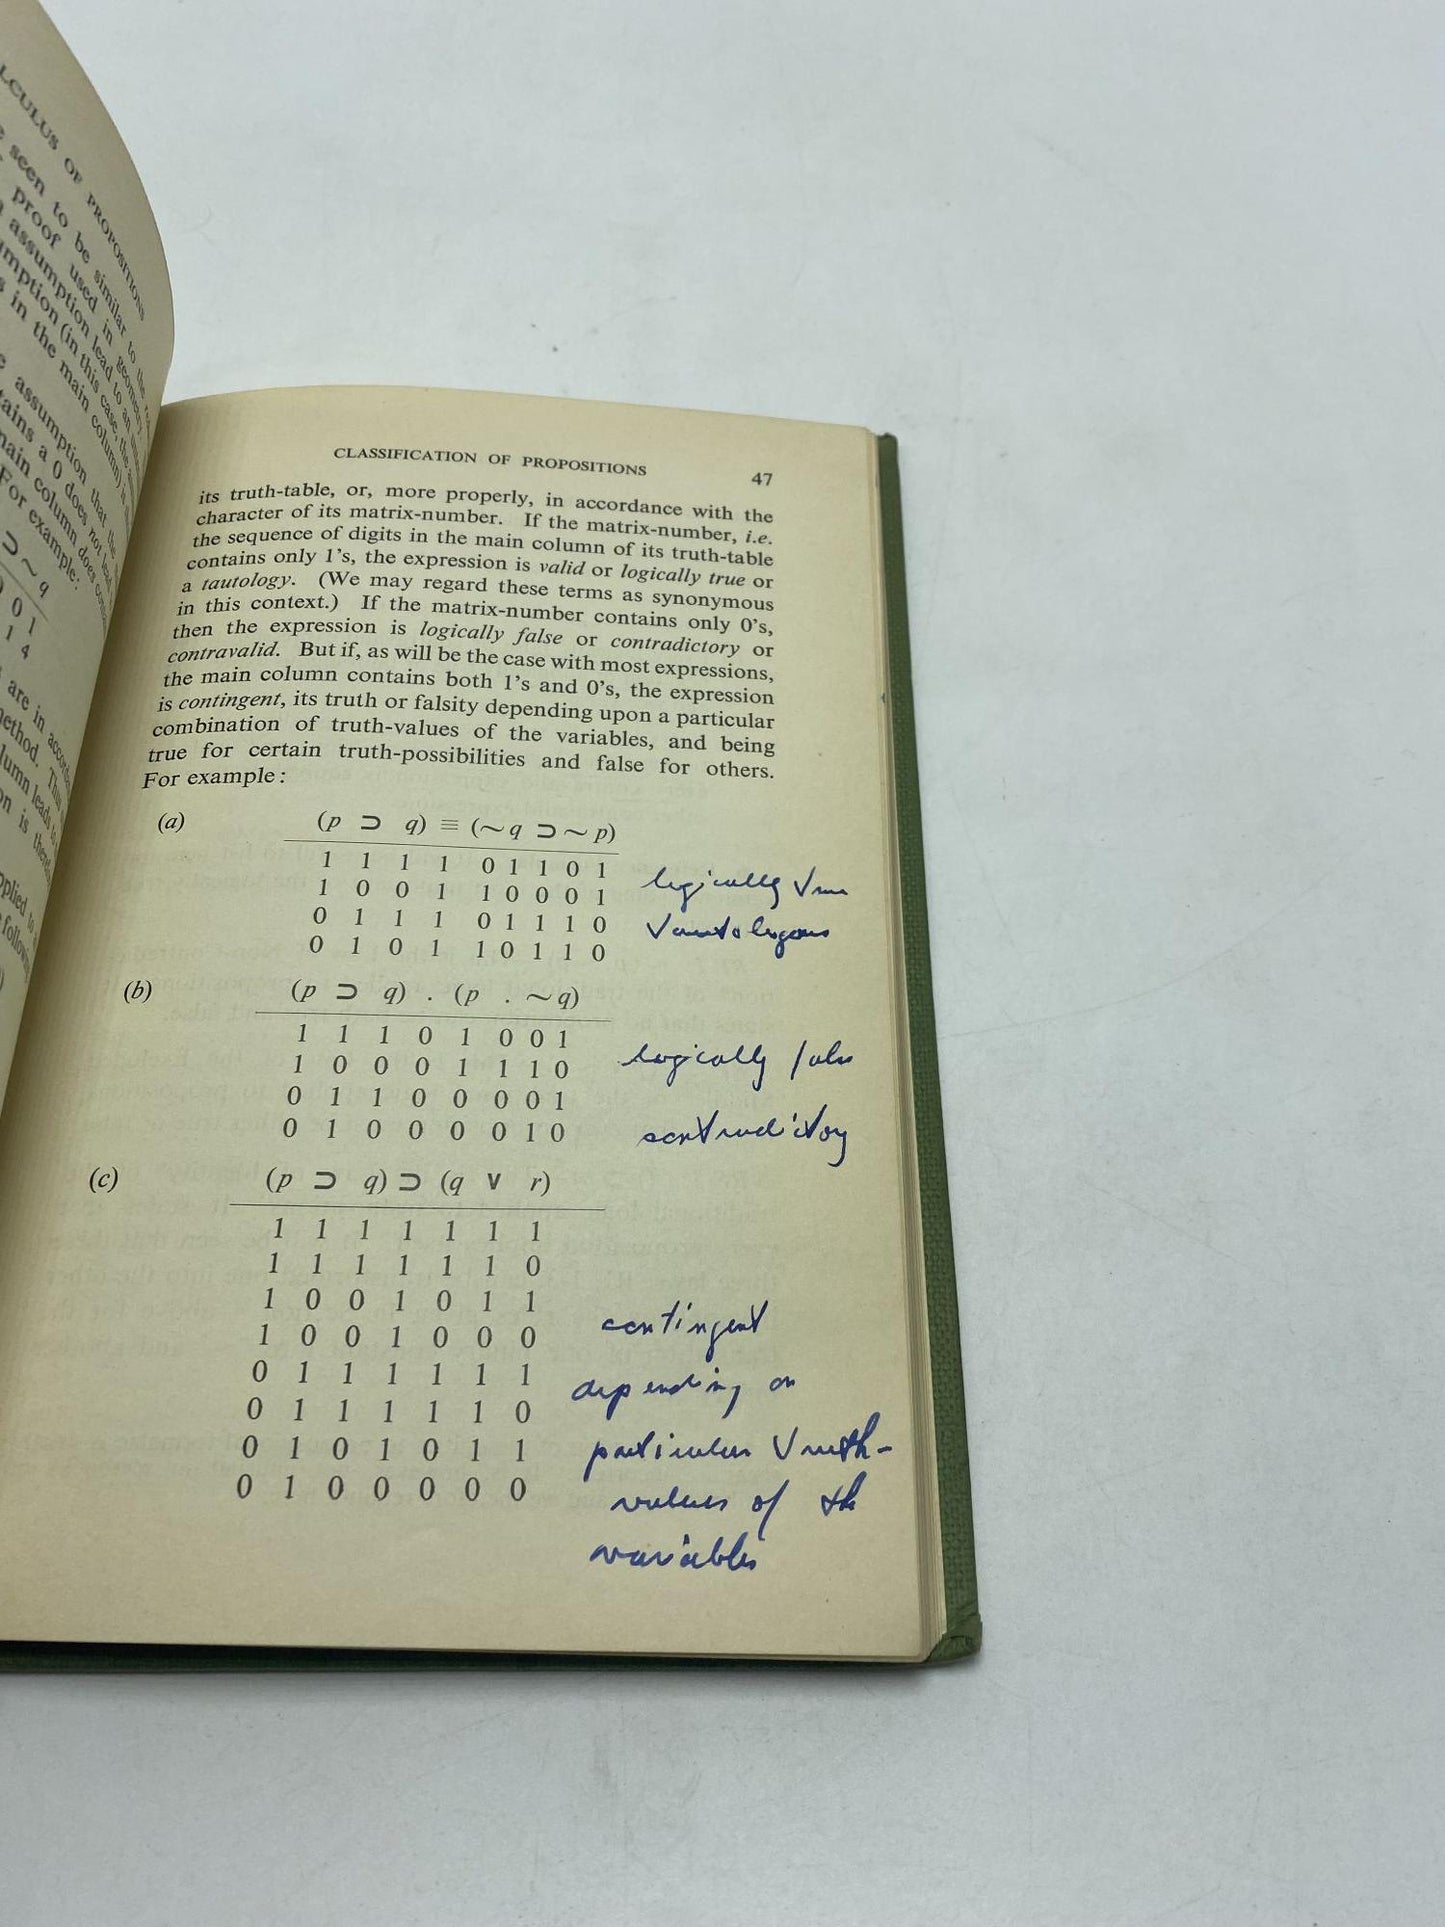 LCULUS OF PROPOSITIONS
seen to be similar to the
proof used in geometry
assumption lead to an
mption (in this case, the
s in the main column) is
assumption that the
tains a 0 does not lead
main column does
For example:
⊃ ~ q
0 1
1 4
are in accordance
method. Thus
column leads to
on is there
pplied to
following
CLASSIFICATION OF PROPOSITIONS 47
its truth-table, or, more properly, in accordance with the
character of its matrix-number. If the matrix-number, i.e.
the sequence of digits in the main column of its truth-table
contains only 1's, the expression is valid or logically true or
a tautology. (We may regard these terms as synonymous
in this context.) If the matrix-number contains only 0's,
then the expression is logically false or contradictory or
contravalid. But if, as will be the case with most expressions,
the main column contains both 1's and 0's, the expression
is contingent, its truth or falsity depending upon a particular
combination of truth-values of the variables, and being
true for certain truth-possibilities and false for others.
For example:
(a) (p ⊃ q) ≡ (~q ⊃ ~p)
1 1 1 1 0 1 1 0 1
1 0 0 1 1 0 0 0 1 logically true
0 1 1 1 0 1 1 1 0 tautologous
0 1 0 1 1 0 1 1 0
(b) (p ⊃ q) . (p . ~q)
1 1 1 0 1 0 0 1
1 0 0 0 1 1 1 0 logically false
0 1 1 0 0 0 0 1
0 1 0 0 0 0 1 0 contradictory
(c) (p ⊃ q) ⊃ (q ∨ r)
1 1 1 1 1 1 1
1 1 1 1 1 1 0
1 0 0 1 0 1 1
1 0 0 1 0 0 0 contingent
0 1 1 1 1 1 1 depending on
0 1 1 1 1 1 0
0 1 0 1 0 1 1 particular truth-
0 1 0 0 0 0 0 values of the
variables